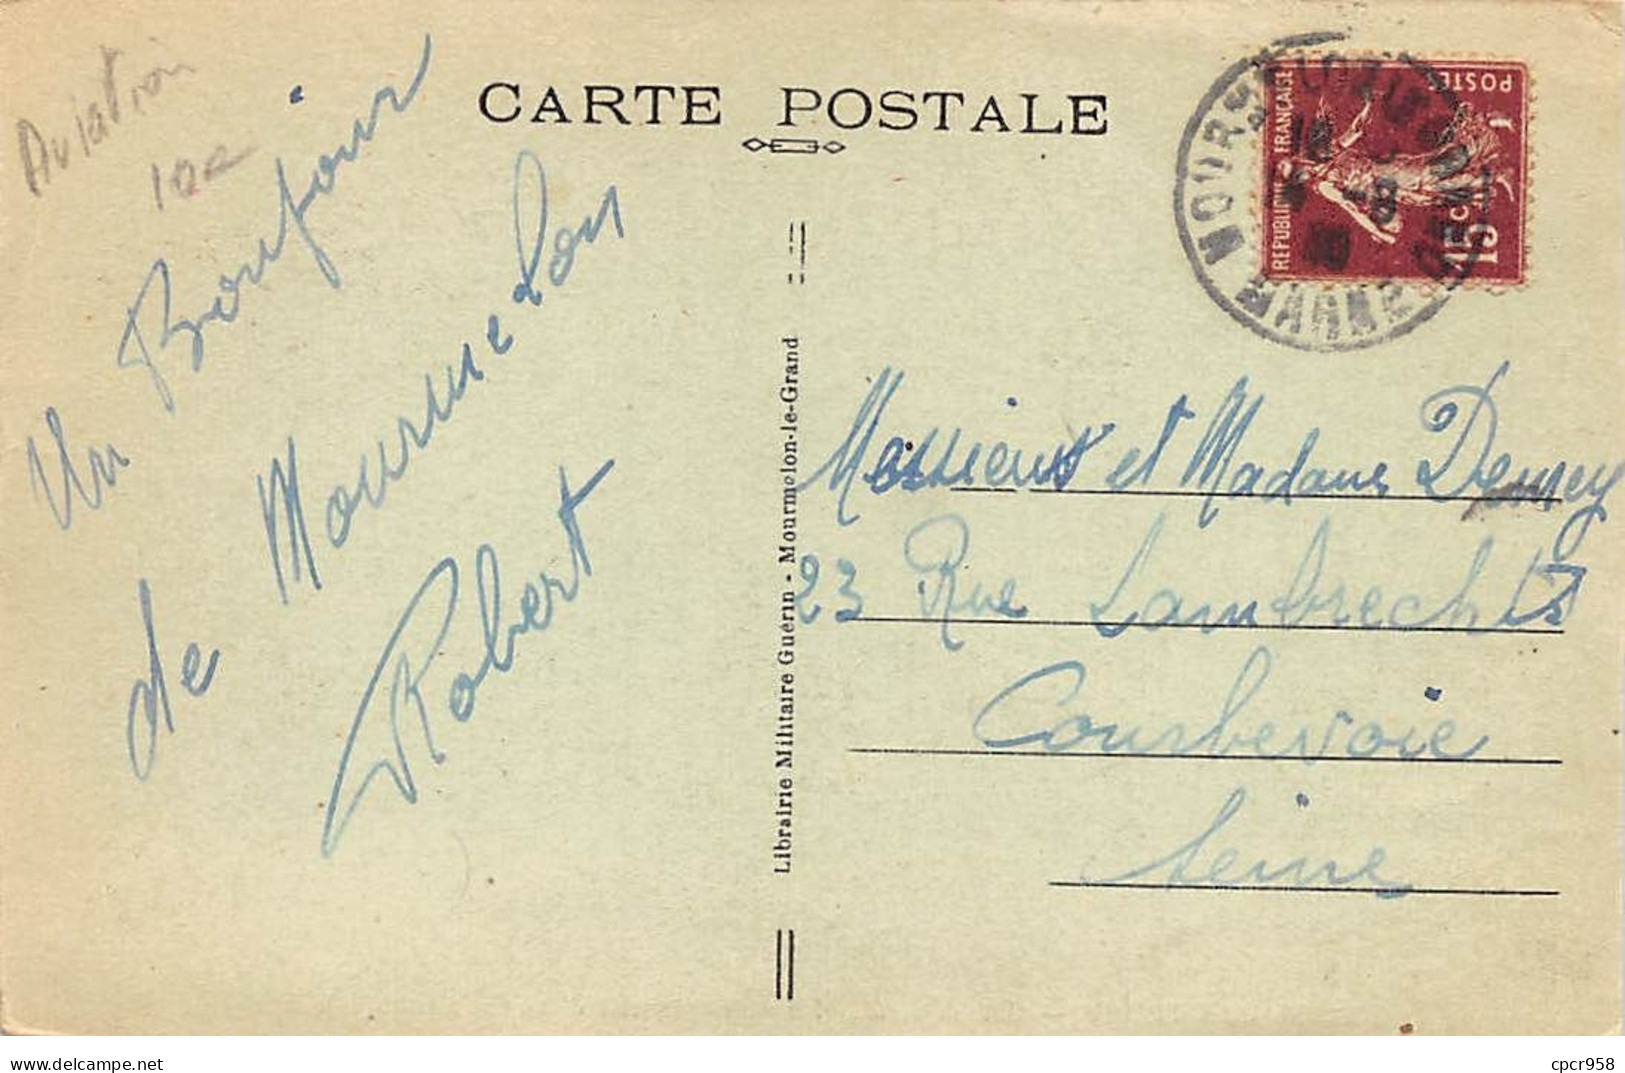 Aviation
CARTE POSTALE
Un Bonjour
de Mourmelon
Robert
Librairie Militaire Guérin - Mourmelon-le-Grand
REPUBLIQUE FRANÇAISE
POSTES
15 c
MARNE
Messieurs et Madame Demey
23 Rue Lambrechts
Courbevoie
Seine
delcampe.net
cpcr958